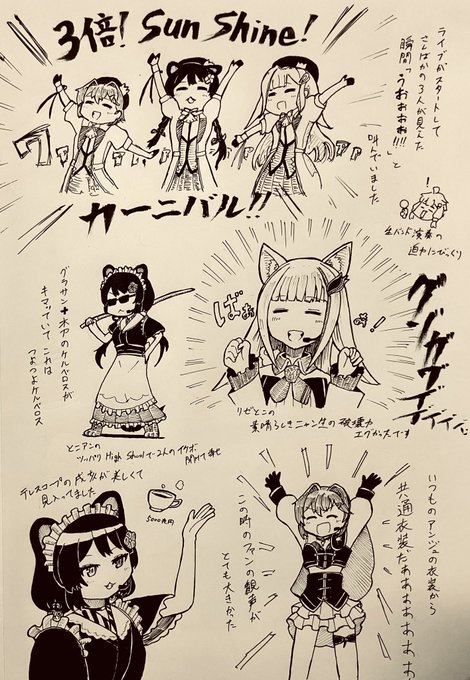 3倍! Sun Shine!
ライブがスタートして
さんばかの3人が見えた
瞬間っうおぉぉぉ!!!」と
叫んでいました
ワァァァァァァァ
カーニバル!!
生バンド演奏の
迫力にびっくり
グラサン+木刀のケルベロスが
キマッていて これは
つよつよケルベロス
とこアンの
ツッパリ High School で2人のイケボ
リゼとこの
素晴らしきニャン生の破壊力
エグかったです
テレスコープの
美しくて
見入ってました
5000兆円
いつものアンジュの衣装から
共通衣装だぁぁぁぁぁぁぁぁ
この時のファンの歓声が
とても大きかった